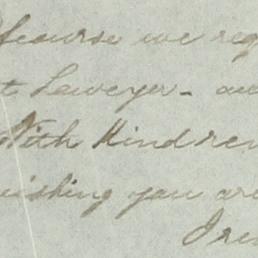 course we req
t Lawyer - au
With Kind rem
wishing you are
I rem